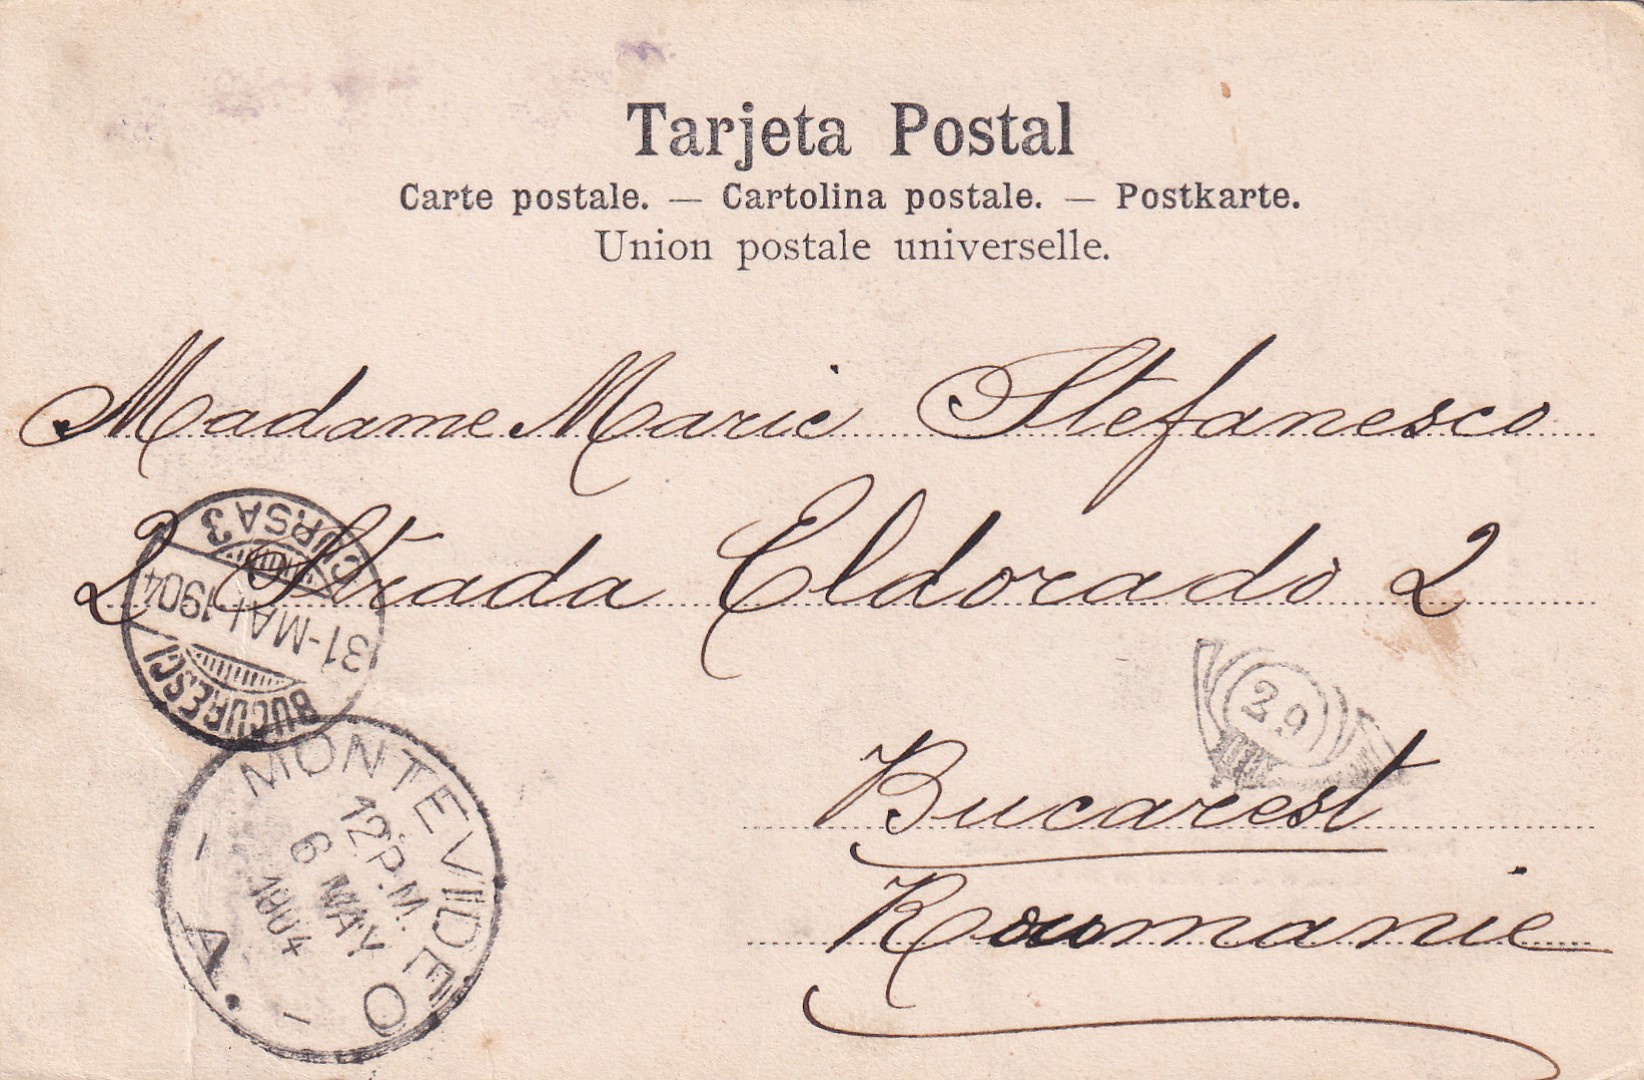 Tarjeta Postal
Carte postale. — Cartolina postale. — Postkarte.
Union postale universelle.
Madame Marie Stefanesco
2 Strada Eldorado 2
Bucarest
Roumanie
CURSA 3
31-MAI-1904
BUCURESCI
MONTEVIDEO
12 P.M.
6 MAY
1904
A
29